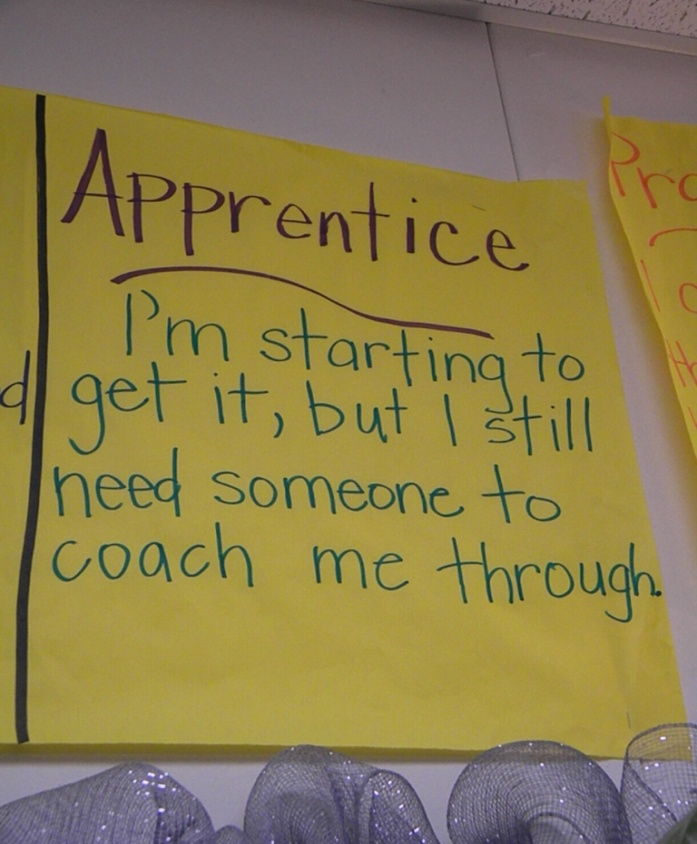 Apprentice
I'm starting to
get it, but I still
need someone to
coach me through.